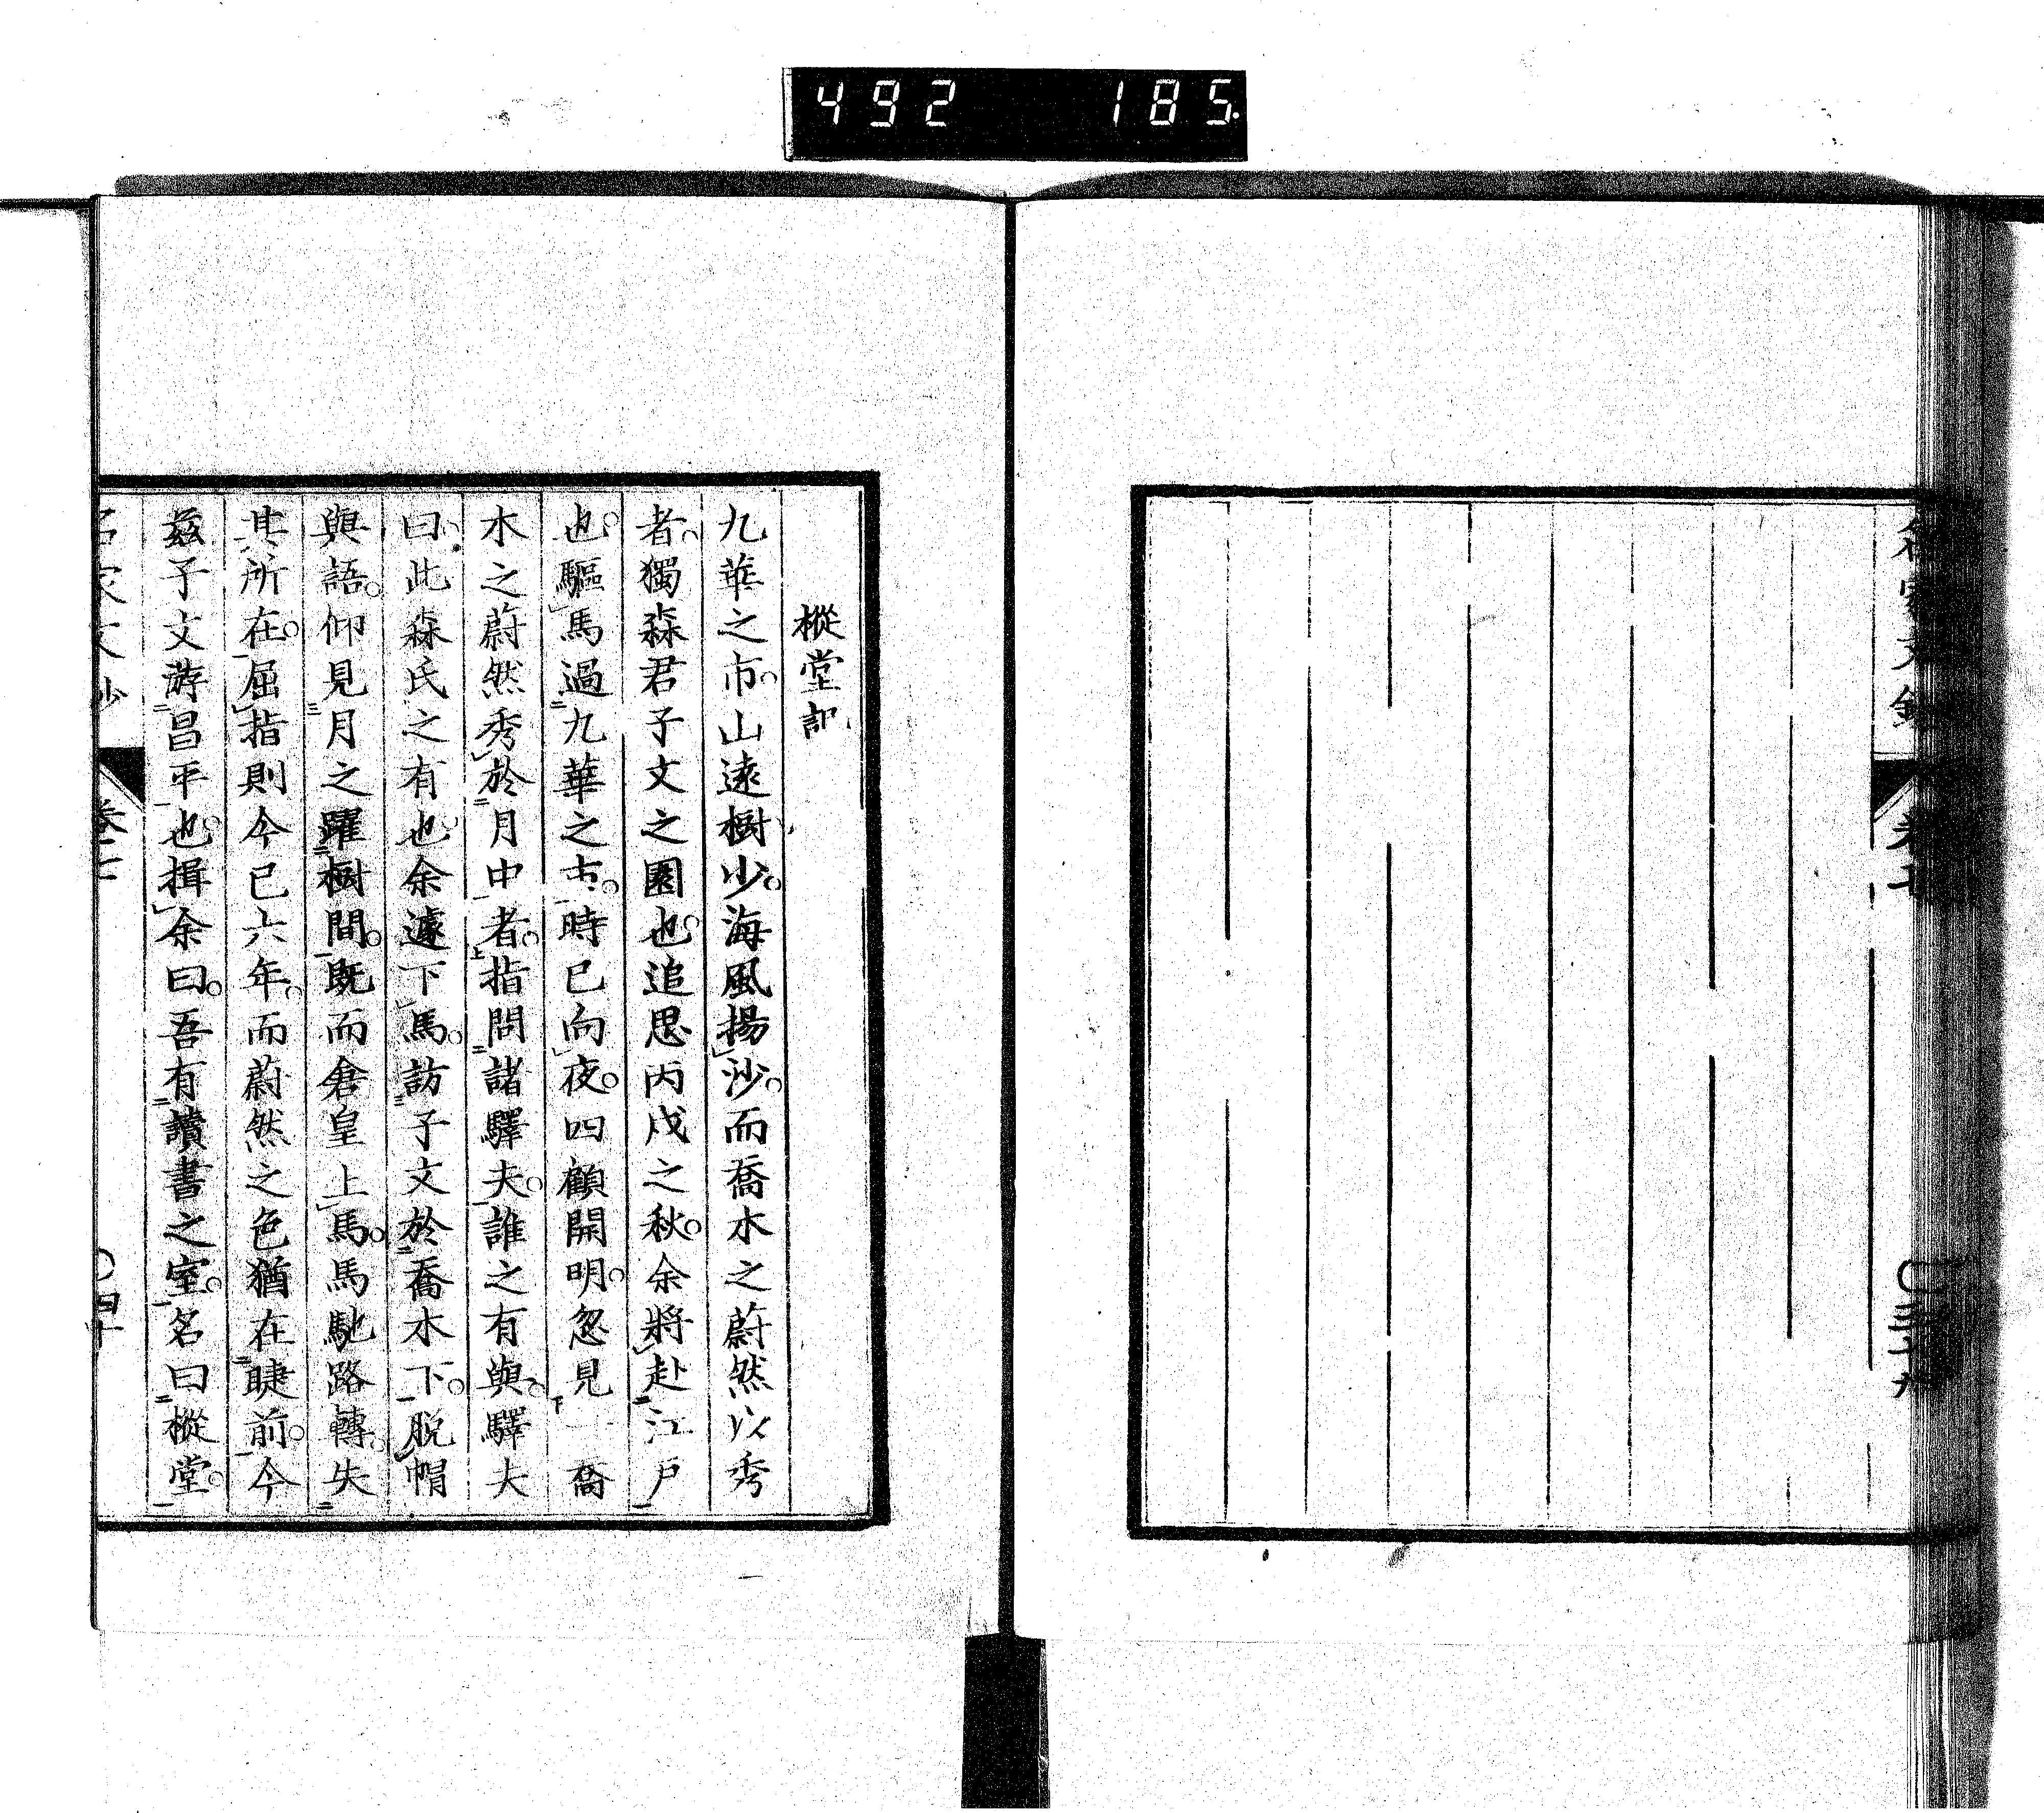 492 185
名家文鈔 卷七 〇三十九
樅堂記
九華之市。山遠樹少。海風揚沙。而喬木之蔚然以秀
者。獨森君子文之園也。追思丙戌之秋。余將赴江戸
也。驅馬過九華之市。時已向夜。四顧開明。忽見一喬
木之蔚然秀於月中者。指問諸驛夫。誰之有與。驛夫
曰。此森氏之有也。余遽下馬。訪子文於喬木下。脱帽
與語。仰見月之躍樹間。既而倉皇上馬。馬馳路轉。失
其所在。屈指則今已六年。而蔚然之色猶在睫前。今
茲子文游昌平也。揖余曰。吾有讀書之室。名曰樅堂。
名家文鈔 卷七 〇四十